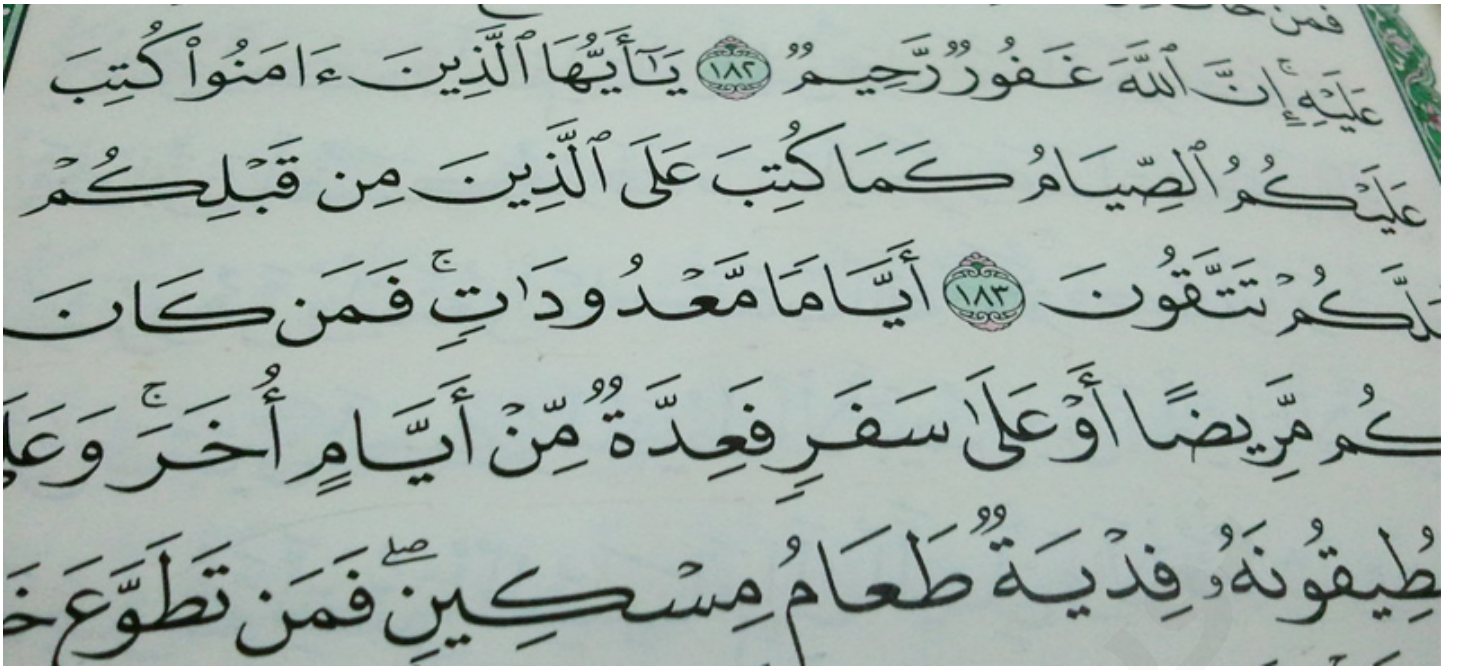 عَلَيْهِ ۚ إِنَّ ٱللَّهَ غَفُورٌ رَّحِيمٌ ١٨٢ يَـٰٓأَيُّهَا ٱلَّذِينَ ءَامَنُوا۟ كُتِبَ
عَلَيْكُمُ ٱلصِّيَامُ كَمَا كُتِبَ عَلَى ٱلَّذِينَ مِن قَبْلِكُمْ
تَتَّقُونَ ١٨٣ أَيَّامًا مَّعْدُودَٰتٍ ۚ فَمَن كَانَ
مَّرِيضًا أَوْ عَلَىٰ سَفَرٍ فَعِدَّةٌ مِّنْ أَيَّامٍ أُخَرَ ۚ
فِدْيَةٌ طَعَامُ مِسْكِينٍ ۖ فَمَن تَطَوَّعَ